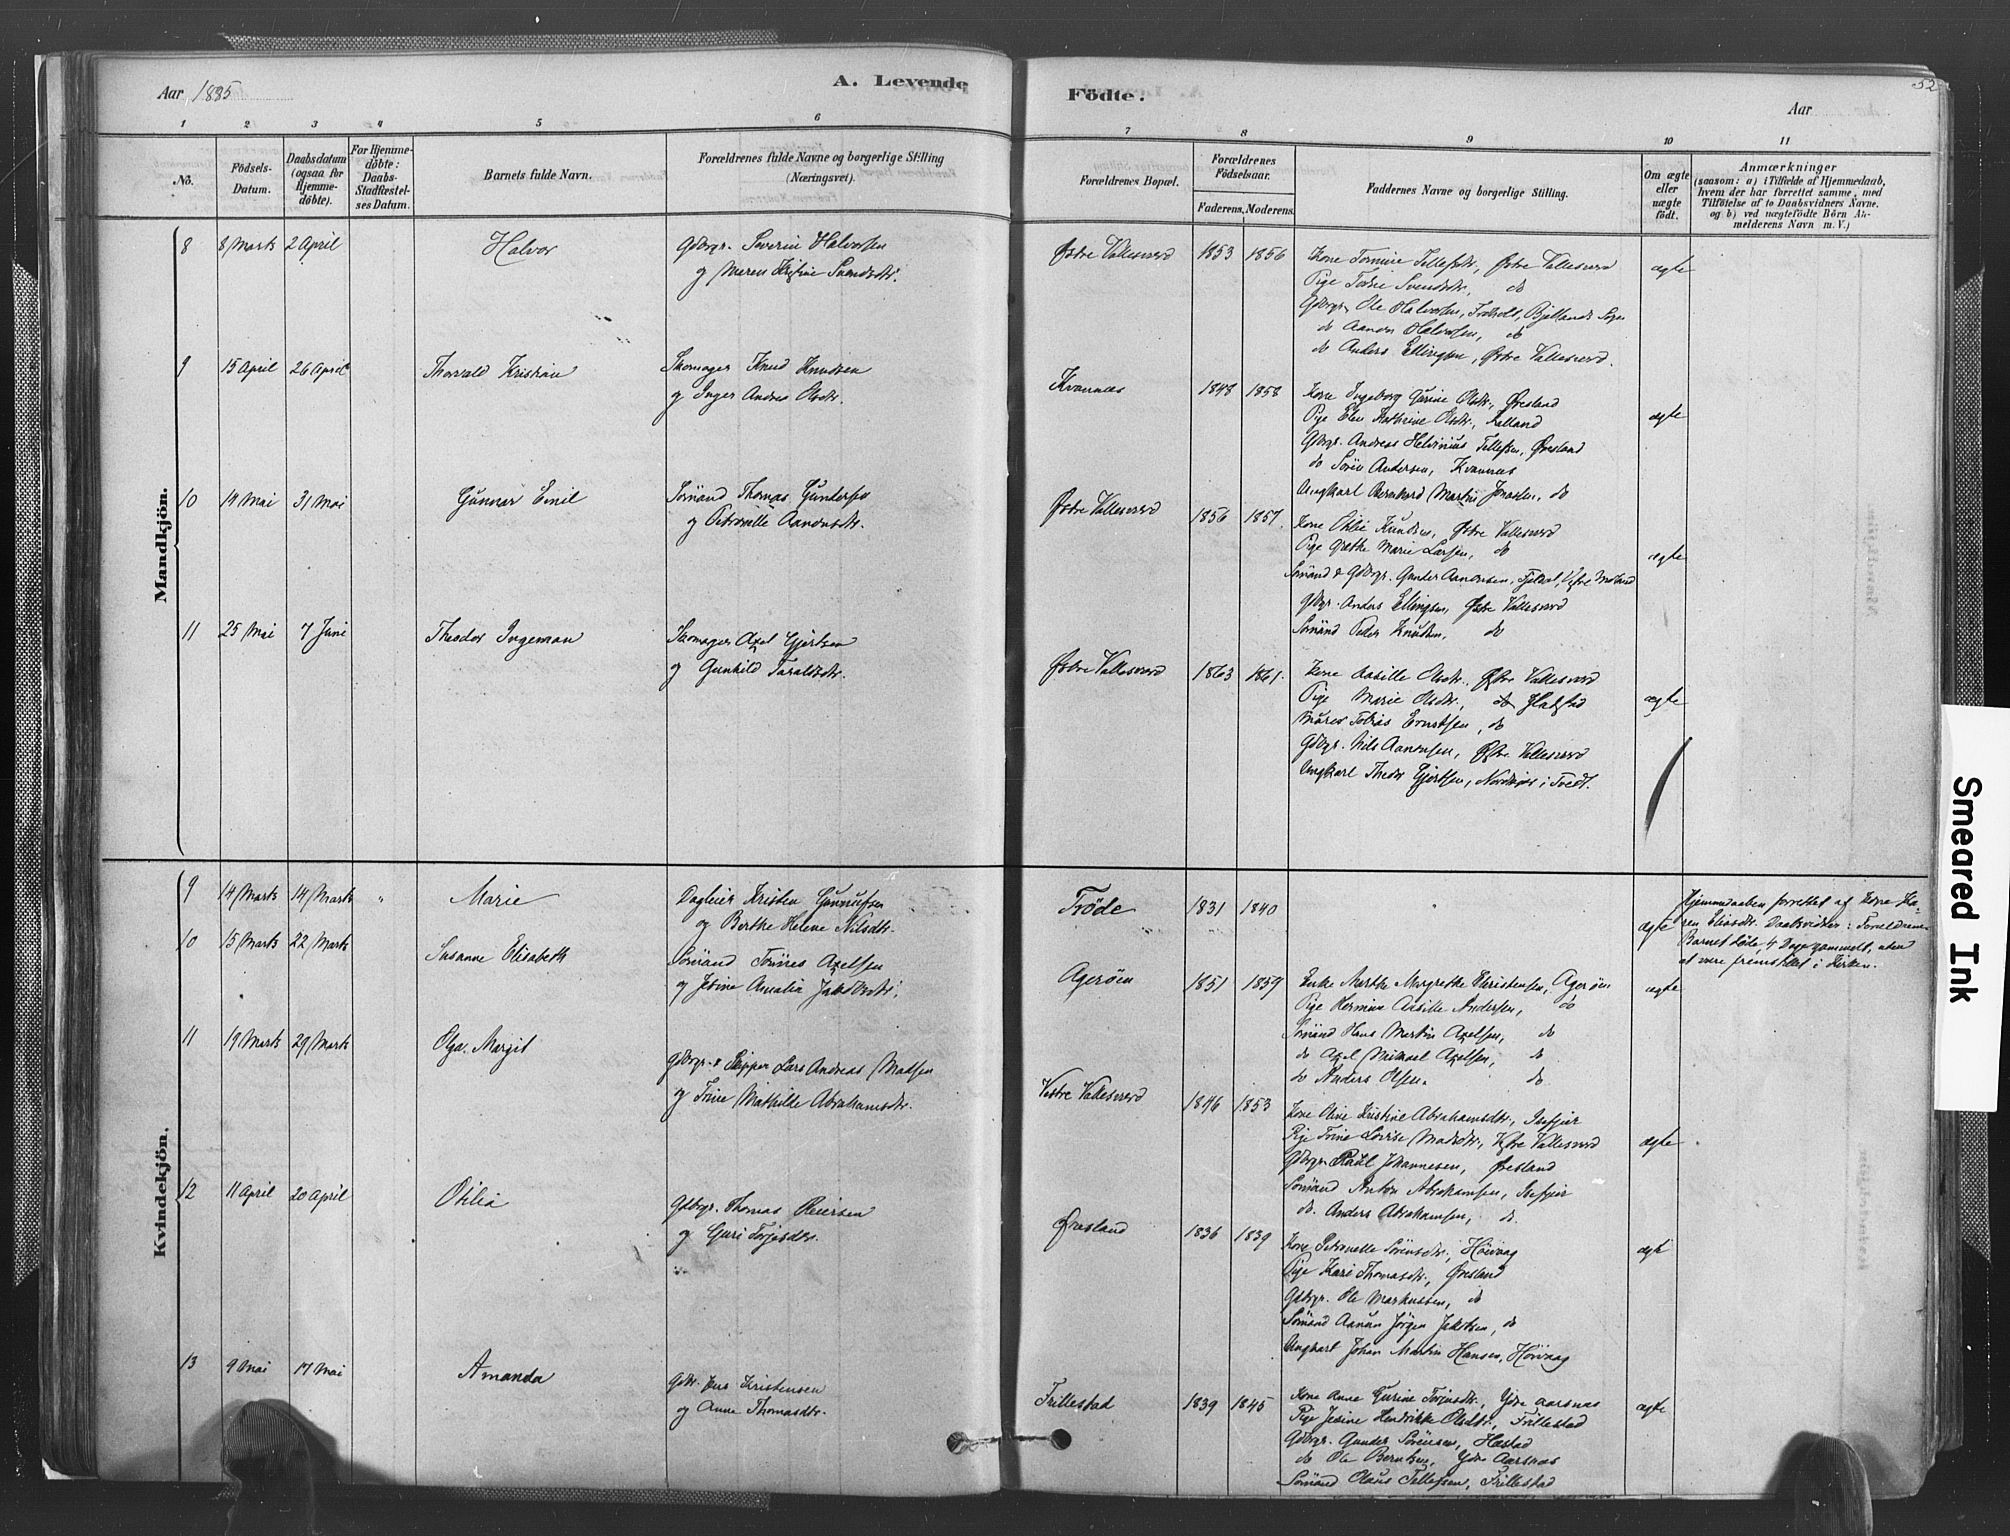 Aar 1885
A. Levende
Fødte.
Aar
52
1 2 3 4 5 6 7 8 9 10 11
No.
Födsels-Datum.
Daabsdatum (ogsaa for Hjemmedöbte).
For Hjemmedöbte: Daabs-Stadfæstelses Datum.
Barnets fulde Navn.
Forældrenes fulde Navne og borgerlige Stilling (Næringsvei).
Forældrenes Bopæl.
Forældrenes Födselsaar.
Faderens. Moderens.
Faddernes Navne og borgerlige Stilling.
Om ægte eller uægte födt.
Anmærkninger
(saasom: a) i Tilfælde af Hjemmedaab, hvem der har forrettet samme, med Tilföielse af to Daabsvidners Navne. og b) ved uægtefödte Börn Anmelderens Navn m. V.)
Mandkjön.
8 8 Marts 2 April Halvor Gdbrgr. Severin Halvorsen
og Maren Kristine Svendsdtr.
Østre Vallesverd 1853 1856 ægte
Kone Tomine Tellefsdtr., Østre Vallesverd
Pige Svendsdtr., do
Gdbrgr. Ole Halvorsen, Bjellands Sogn
do Aanon Halvorsen, do
do Anders Ellingsen, Østre Vallesverd.
9 15 April 26 April Thorvald Kristian Skomager Knud Knudsen
og Inger Andrea Olsdtr.
Kvannes 1848 1858 ægte
Kone Ingeborg Gurine Olsdtr., Øresland
Pige Elen Kathrine Olsdtr.,
Gdbrgr. Andreas Helvinius Tellefsen, Øresland
do Sören Andersen, Kvannes
Ungkarl Bernhard Martin Jonassen, do
10 14 Mai 31 Mai Gunnar Emil Sömand Thomas Gundersen
og Petronille Aanonsdtr.
Østre Vallesverd 1856 1857. ægte
Kone Knudsen, Østre Vallesverd
Pige Grethe Marie Larsen, do
Sömand & Gdbrgr. Gunder Aanonsen,
Gdbgr. Anders Ellingsen, Østre Vallesverd
Sömand Peder Knudsen, do
11 25 Mai 7 Juni Theodor Ingeman Skomager Axel Gjertsen
og Gunhild Taraldsdtr.
Østre Vallesverd 1863 1861. ægte
Kone Olsdtr., Østre Vallesverd
Pige Marie Olsdtr.,
Tobias Ernstsen, do
Gdbrgr. Nils Aanonsen, Østre Vallesverd
Ungkarl Theodor Gjertsen, i Tvedt.
Kvindekjön.
9 14 Marts 14 Marts " Marie Dagleier Kristen Gunnufsen
og Berthe Helene Nilsdtr.
Tröde 1831 1840 ægte
Hjemmedaaben forrettet af Kone Karen
Eliasdtr. Daabsvidner: Forældrene.
Barnet döde 4 Dage gammelt, uden
at være fremstillet i Kirken.
10 15 Marts 22 Marts Susanne Elisabeth Sömand Tönnes Axelsen
og Jesine Amalia Jakobsdtr.
Ageröen 1851 1859 ægte
Enke Marthe Margrethe Christensen, Ageröen
Pige Hermine Andersen, do
Sömand Hans Martin Axelsen, do
do Axel Mikael Axelsen, do
do Anders Olsen. do
11 19 Marts 29 Marts Olga Margit Gdbrgr. & Skipper Lars Andreas Madsen
og Trine Mathilde Abrahamsdtr.
Vestre Vallesverd 1846 1853 ægte
Kone Kristine Abrahamsdtr., Isefjær
Pige Trine Lovise Madsdtr., Vestre Vallesverd
Gdbrgr. Johannesen, Øresland
Sömand Anton Abrahamsen, Isefjær
do. Anders Abrahamsen, do.
12 11 April 20 April Otilia Gdbrgr. Thomas Reiersen
og Guri Torjesdtr.
Øresland 1836 1839 ægte
Kone Petronelle Sörensdtr., Hövaag
Pige Kari Thomasdtr., Øresland
Gdbrgr. Ole Markussen, do
Sömand Aanun Jörgen Jakobsen, do
Ungkarl Johan Martin Hansen, Hövaag
13 9 Mai 17 Mai Amanda Gdbr. Jens Kristensen
og Anne Thomasdtr.
Frillestad 1839 1845 ægte
Kone Anne Gurine Torjusdtr., Ydre Aarsnes
Pige Jesine Hendrikke Olsdtr., Frillestad
Gdbrgr. Gunder Sörensen, Hæstad
do Ole Berntsen, Ydre Aarsnes
Sömand Olaus Tellefsen, Frillestad
Smeared Ink